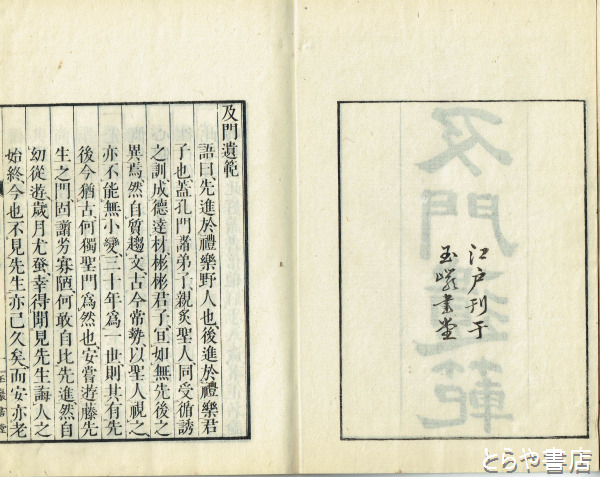 江戸刊于
玉巖書堂
及門遺範
及門遺範
語曰先進於禮樂野人也後進於禮樂君
子也蓋孔門諸弟子親炙聖人同受循誘
之訓成德達材彬彬君子宜如無先後之
異焉然自質趨文古今常勢以聖人視之
亦不能無小變三十年為一世則其有先
後今猶古何獨聖門為然也安嘗遊藤先
生之門固謭劣寡陋何敢自比先進然自
幼從遊歲月尤蚤幸得聞見先生誨人之
始終今也不見先生亦已久矣而安亦老
玉巖書堂
とらや書店